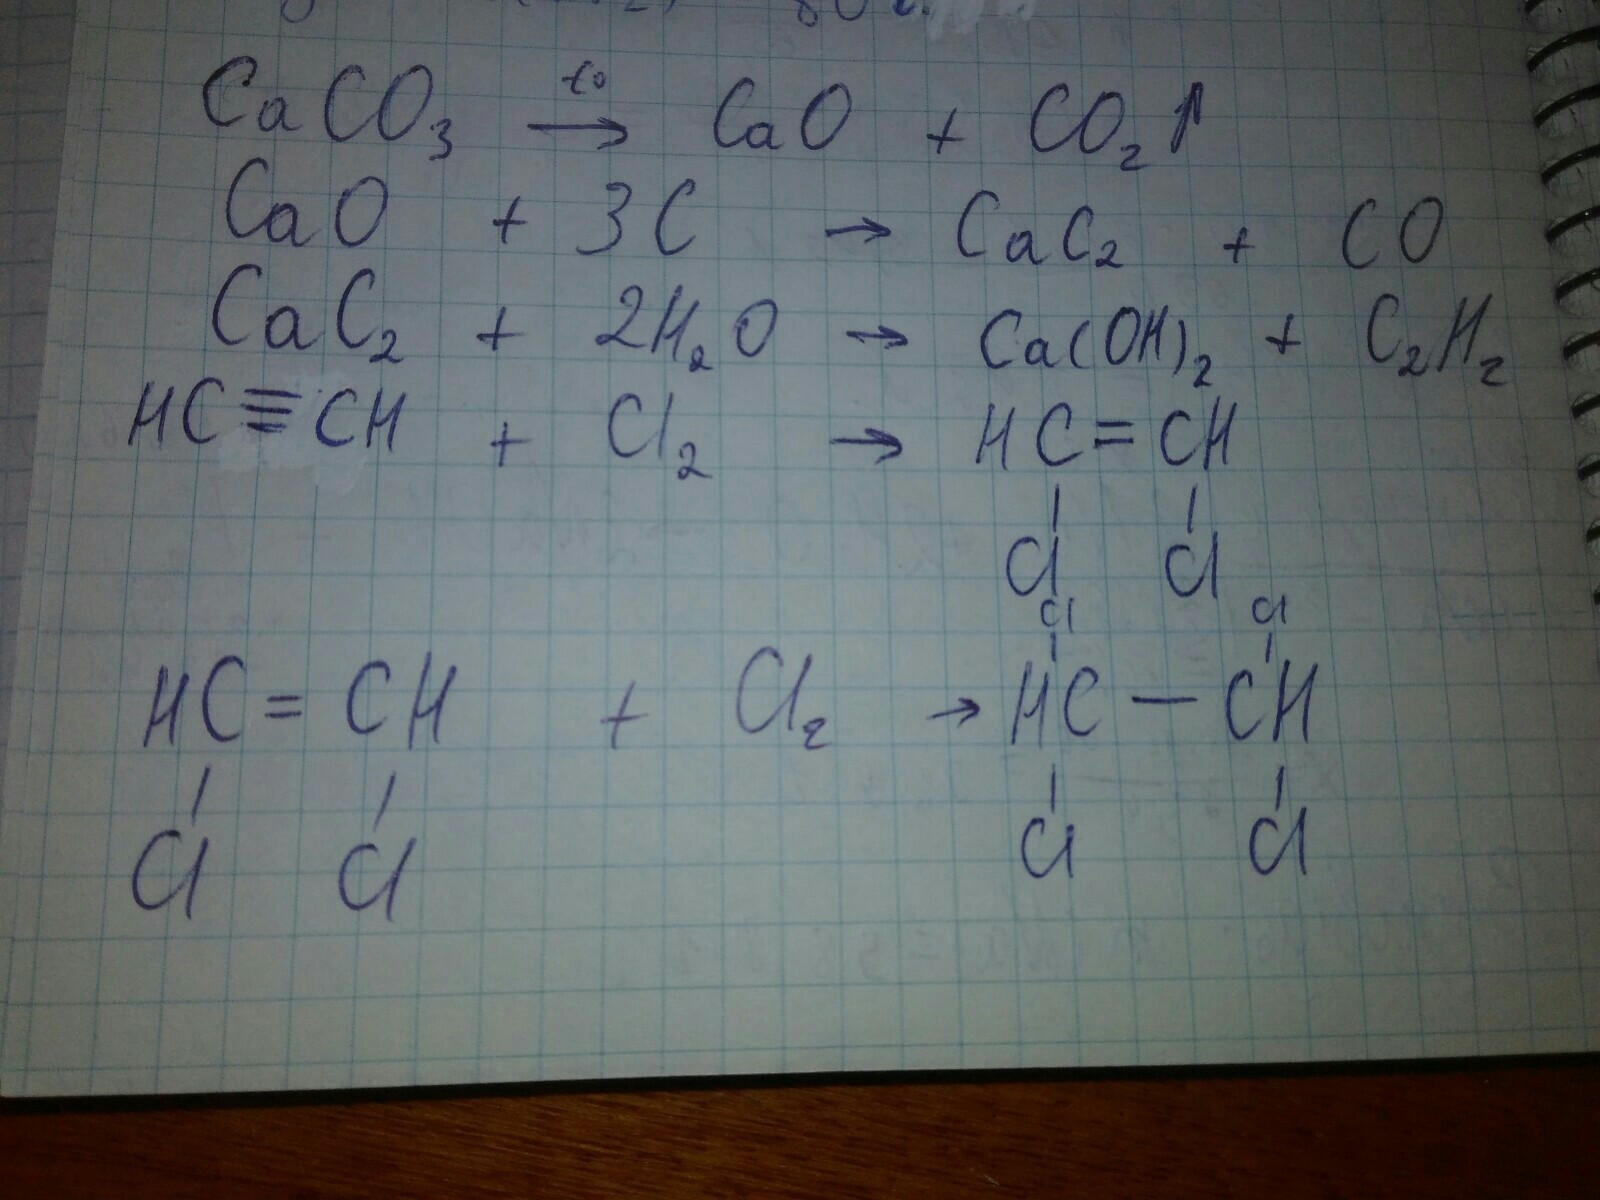 CaCO₃ →t° CaO + CO₂↑
CaO + 3C → CaC₂ + CO
CaC₂ + 2H₂O → Ca(OH)₂ + C₂H₂
HC≡CH + Cl₂ → HC=CH
| |
Cl Cl
Cl Cl
| |
HC=CH + Cl₂ → HC—CH
| | | |
Cl Cl Cl Cl